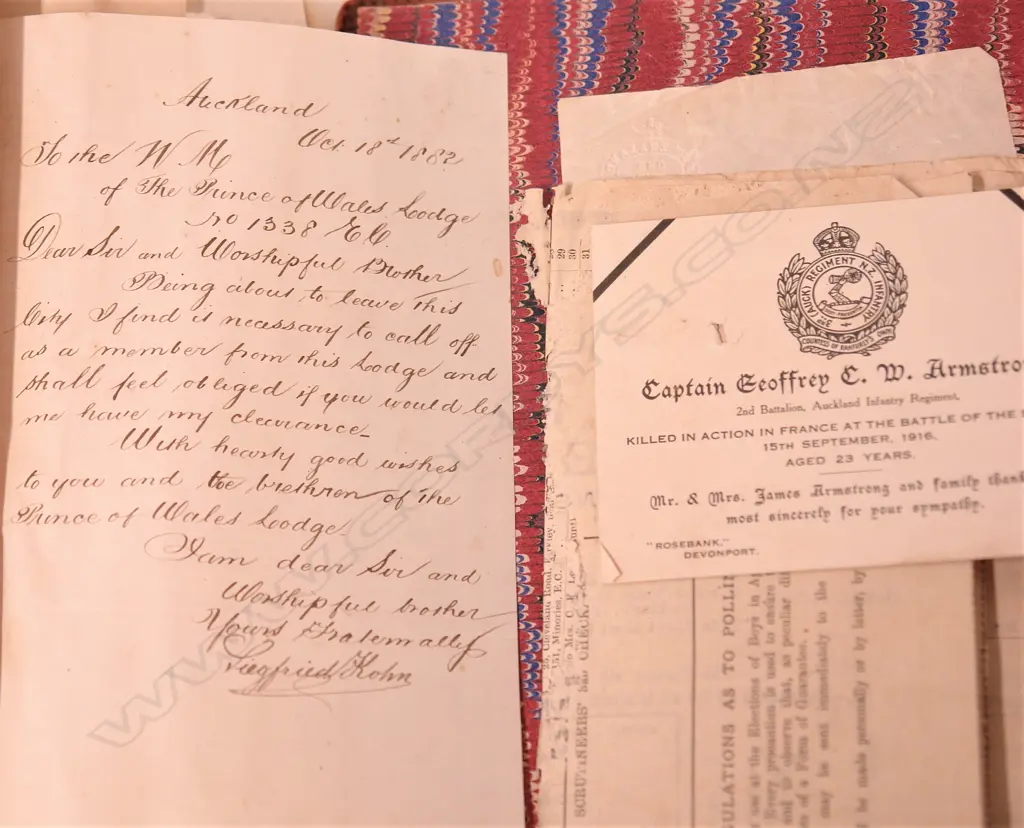 Auckland
Oct 18th 1882
To the W M
of The Prince of Wales Lodge
No 1338 E.C.
Dear Sir and Worshipful Brother
Being about to leave this
City I find it necessary to call off
as a member from this Lodge and
shall feel obliged if you would let
me have my clearance_
With hearty good wishes
to you and the brethren of the
Prince of Wales Lodge
I am dear Sir and
Worshipful brother
Yours Fraternally
Siegfried Kohn
29
30
31
3RD (AUCK) REGIMENT N.Z. INFANTRY
COUNTESS OF RANFURLY'S OWN
Captain Geoffrey C. W. Armstro
2nd Battalion, Auckland Infantry Regiment,
KILLED IN ACTION IN FRANCE AT THE BATTLE OF THE
15TH SEPTEMBER, 1916,
AGED 23 YEARS.
Mr. & Mrs. James Armstrong and family thank
most sincerely for your sympathy.
"ROSEBANK,"
DEVONPORT.
Cleveland Road,
151, Minories, E.C.
SCRUTINEERS' CHECK
ULATIONS AS TO POLLI
use at the Elections of Boys in A
Every precaution is used to ensure
and to observe that, as peculiar di
es of a Form of Guarantee,
may be sent immediately to the
be made personally or by letter, by
www.corrys.co.nz